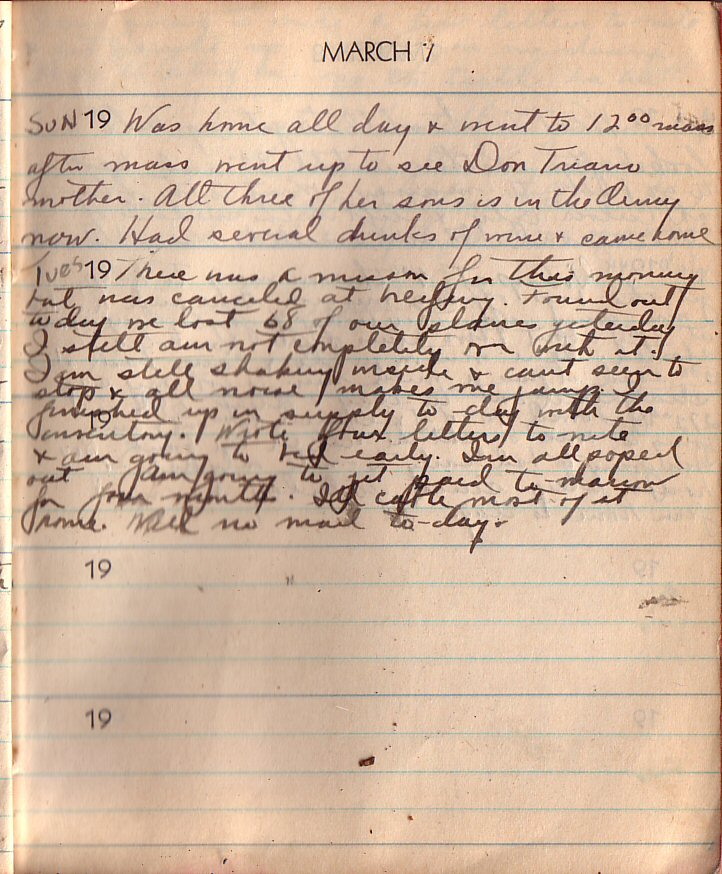 MARCH 7
SUN 19 Was home all day & went to 12 00 mass
after mass went up to see Don Triano
mother. All three of her sons is in the Army
now. Had several drinks of wine & came home
Tues 19 There was a mission for this morning
but was canceled at briefing. Found out
today we lost 68 of our planes yesterday
I still am not completely over with it.
I am still shaking inside & cant seem to
stop & all noise makes me jump. I
finished up in supply to-day with the
19
inventory. Wrote four letters to nite
& am going to bed early. Im all poped
out am going to get paid to-morrow
for four months. I'll cable most of it
home. Had no mail to-day.
19
19